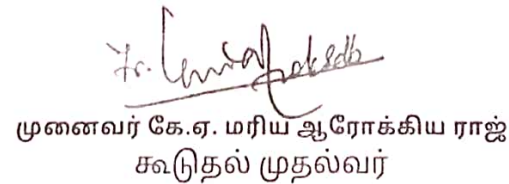 முனைவர் கே.ஏ. மரிய ஆரோக்கிய ராஜ்
கூடுதல் முதல்வர்